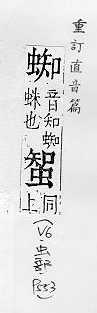 重訂直音篇
蜘
音知蜘
蛛也
同
上
(V6
虫部
P553)